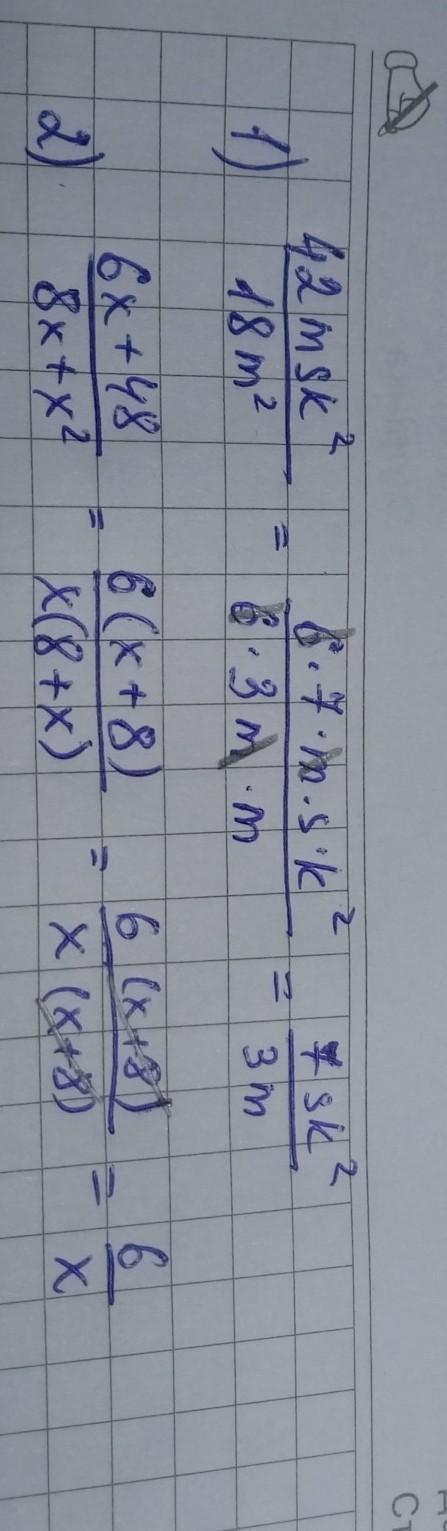 1) 42msk²/18m² = 6·7·m·s·k²/6·3m·m = 7sk²/3m
2) 6x+48/8x+x² = 6(x+8)/x(8+x) = 6(x+8)/x(x+8) = 6/x